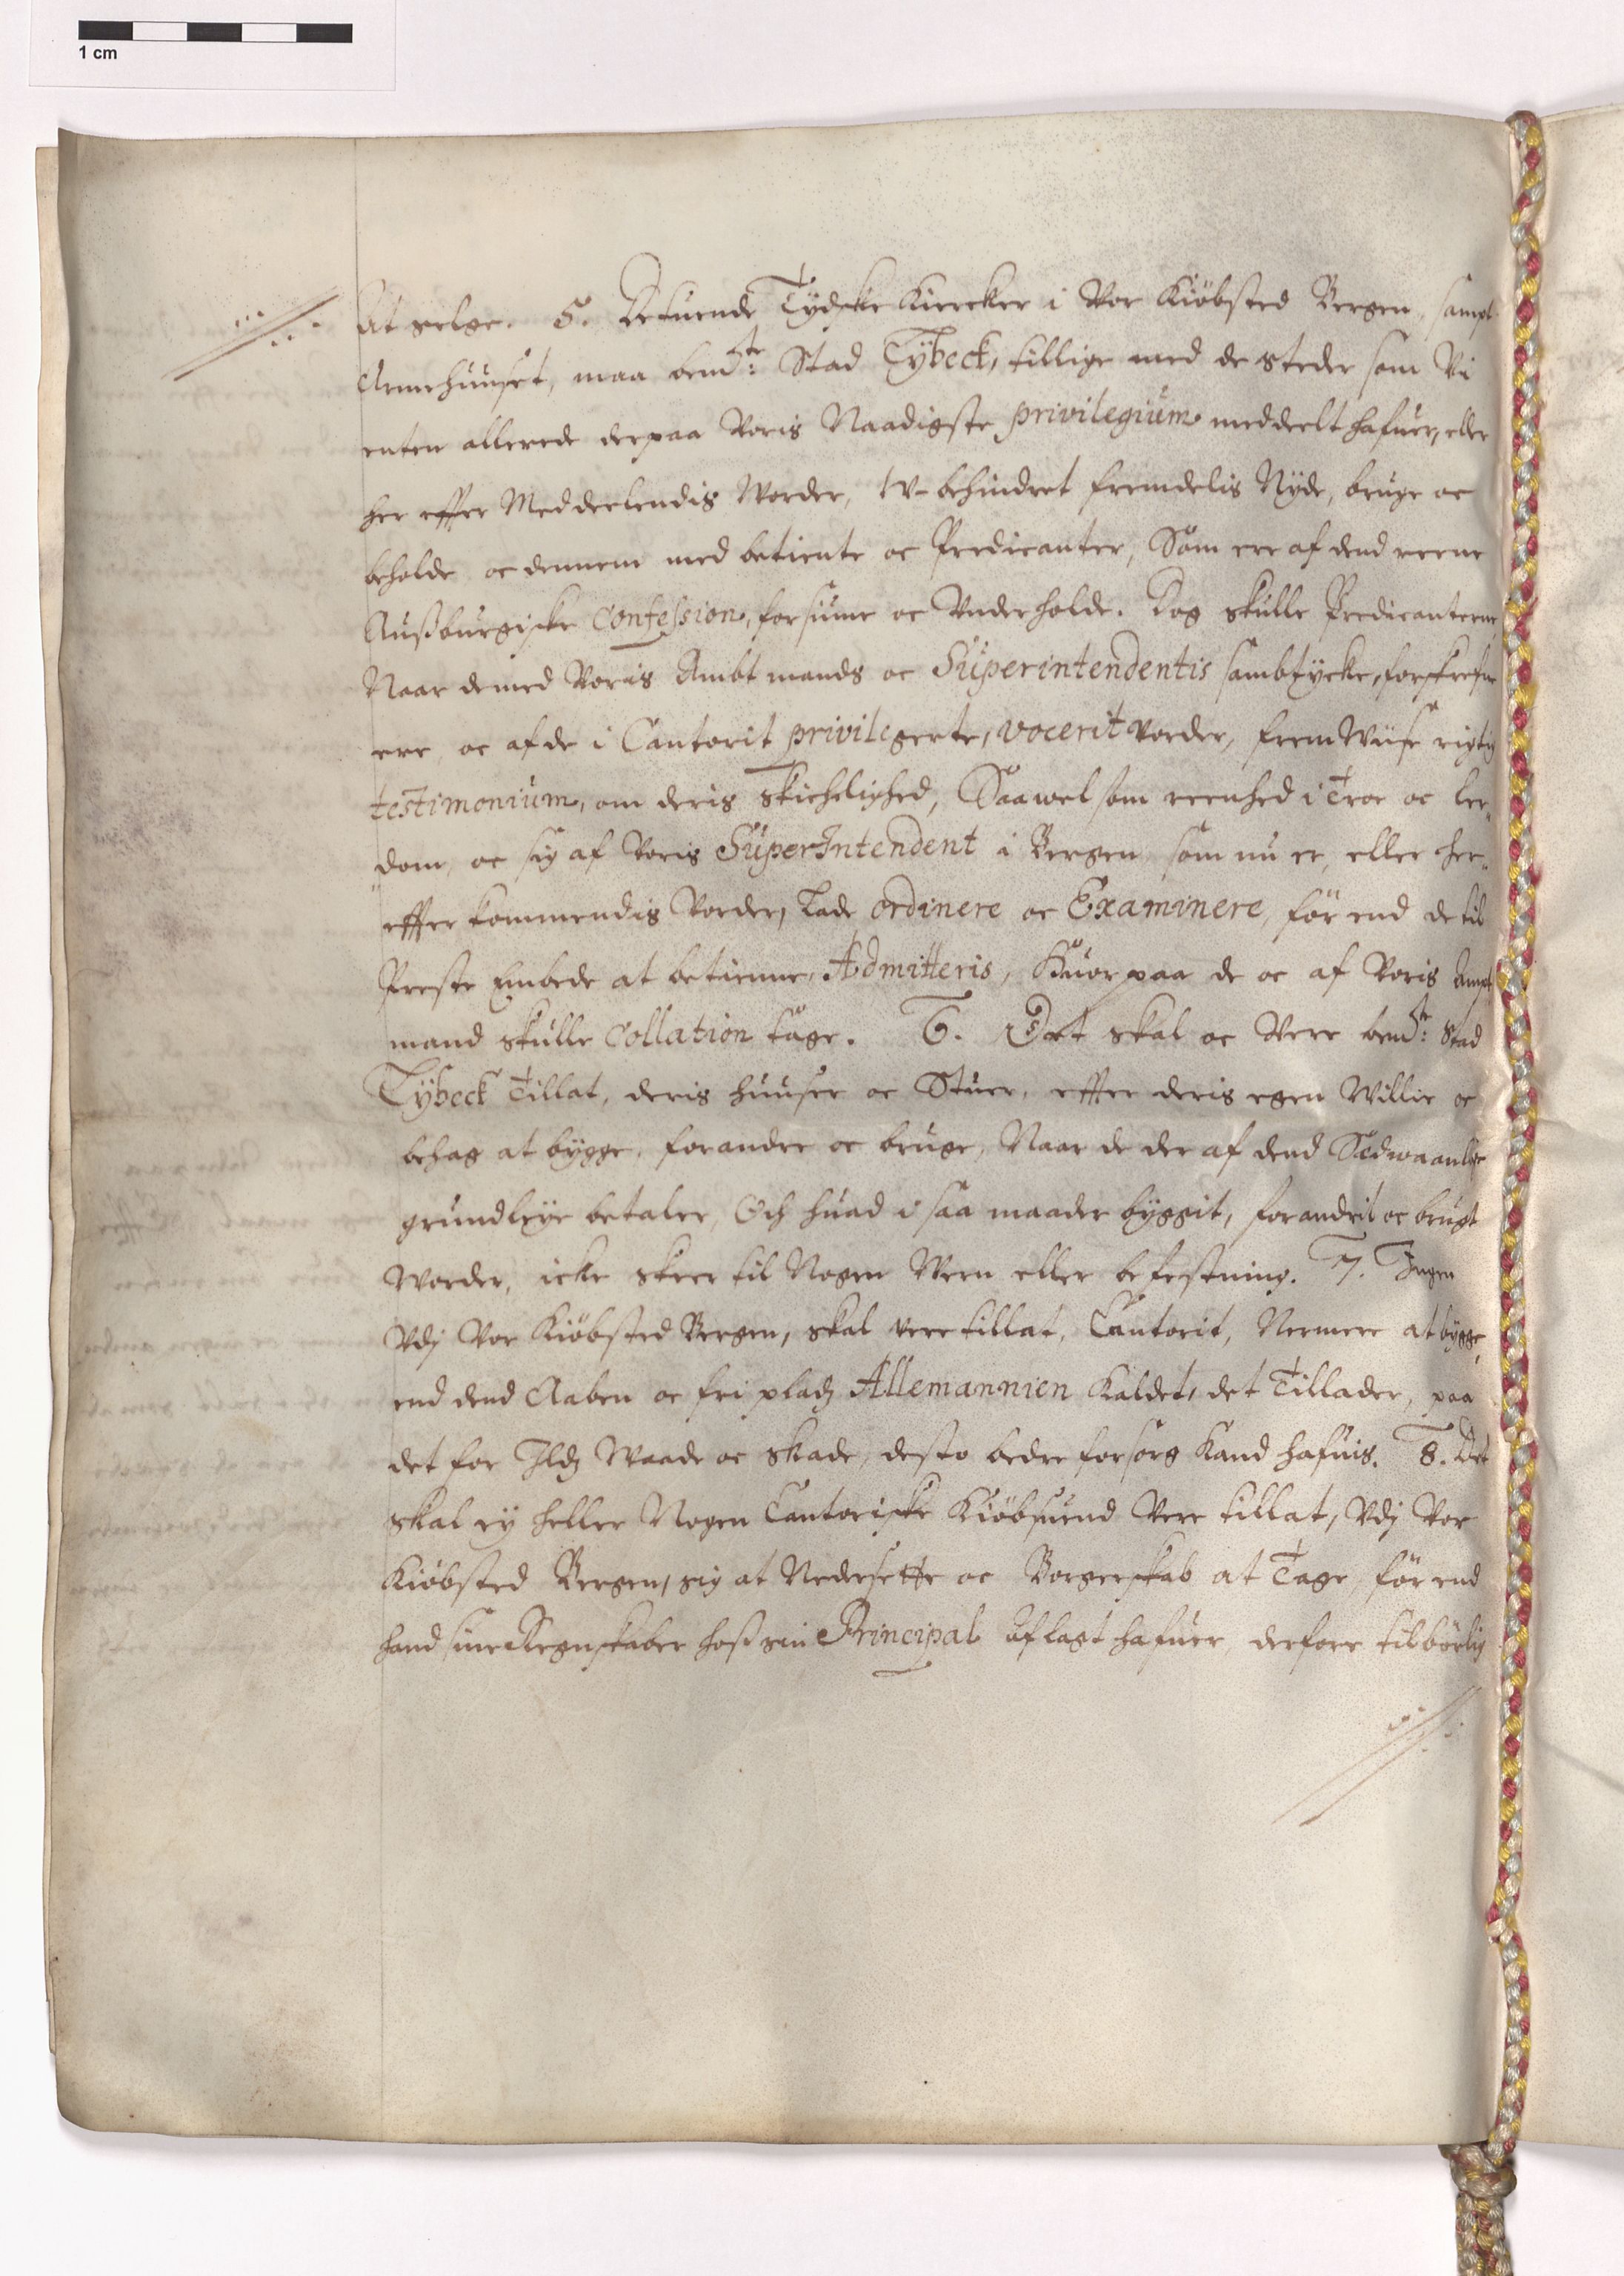 1 cm
At selge. 5. De tuende Tydske Kiercker i Vor Kiöbsted Bergen, sampt
Armehuuset, maa bemte: Stad Lybeck, tillige med de steder som Vi
enten allerede derpaa Voris Naadigste privilegium meddeelt hafuer, eller
her effter Meddeelendis Vorder, W-behindret fremdelis Nyde, bruge oc
beholde oc dennem med betiente oc Predicanter, Som ere af dend reene
Außburgiske Confession, forsiune oc Vnderholde. Dog skulle Predicanterne,
Naar de med Voris Ambtmands oc Superintendentis sambtycke, forskrefne
ere, oc af de i Cantorit privilegerte, vocerit Vorder, frem Wiise rigtig
testimonium, om deris Skichelighed, Saawel som reenhed i Troe oc ler-
dom, oc sig af Voris SuperIntendent i Bergen, som nu er, eller her-
effter kommendis Vorder, Lade ordinere oc Examinere, för end de til
Preste Embede at betienne, Admitteris, Huor paa de oc af Voris Ampt
mand skulle Collation tage. 6. Det skal oc Vere bemte: Stad
Lybeck Tillat, deris huuser oc Stuer, effter deris egen Willie oc
behag at bygge, forandre oc bruge, Naar de der af dend Sædwaanlige
grundleye betaler, Och huad i saa maader byggit, forandrit oc brugt
Worder, icke skeer til Nogen Wern eller befestning. 7. Ingen
Vdj Vor Kiöbsted Bergen, skal vere tillat, Cantorit, Nermere at bygge,
end dend Aaben oc fri pladz Allemannien Kaldet, det Tillader, paa
det for Ildz Waade oc skade, desto bedre forsorg Kand hafuis. 8. Det
skal ey heller Nogen Cantoriske Kiöbsuend Vere tillat, Vdj Vor
Kiöbsted Bergen, sig at Nedersette oc Borgerskab at Tage, för end
hand sine Regnskaber hoß sin Principal aflagt hafuer, derfore tilbörlig